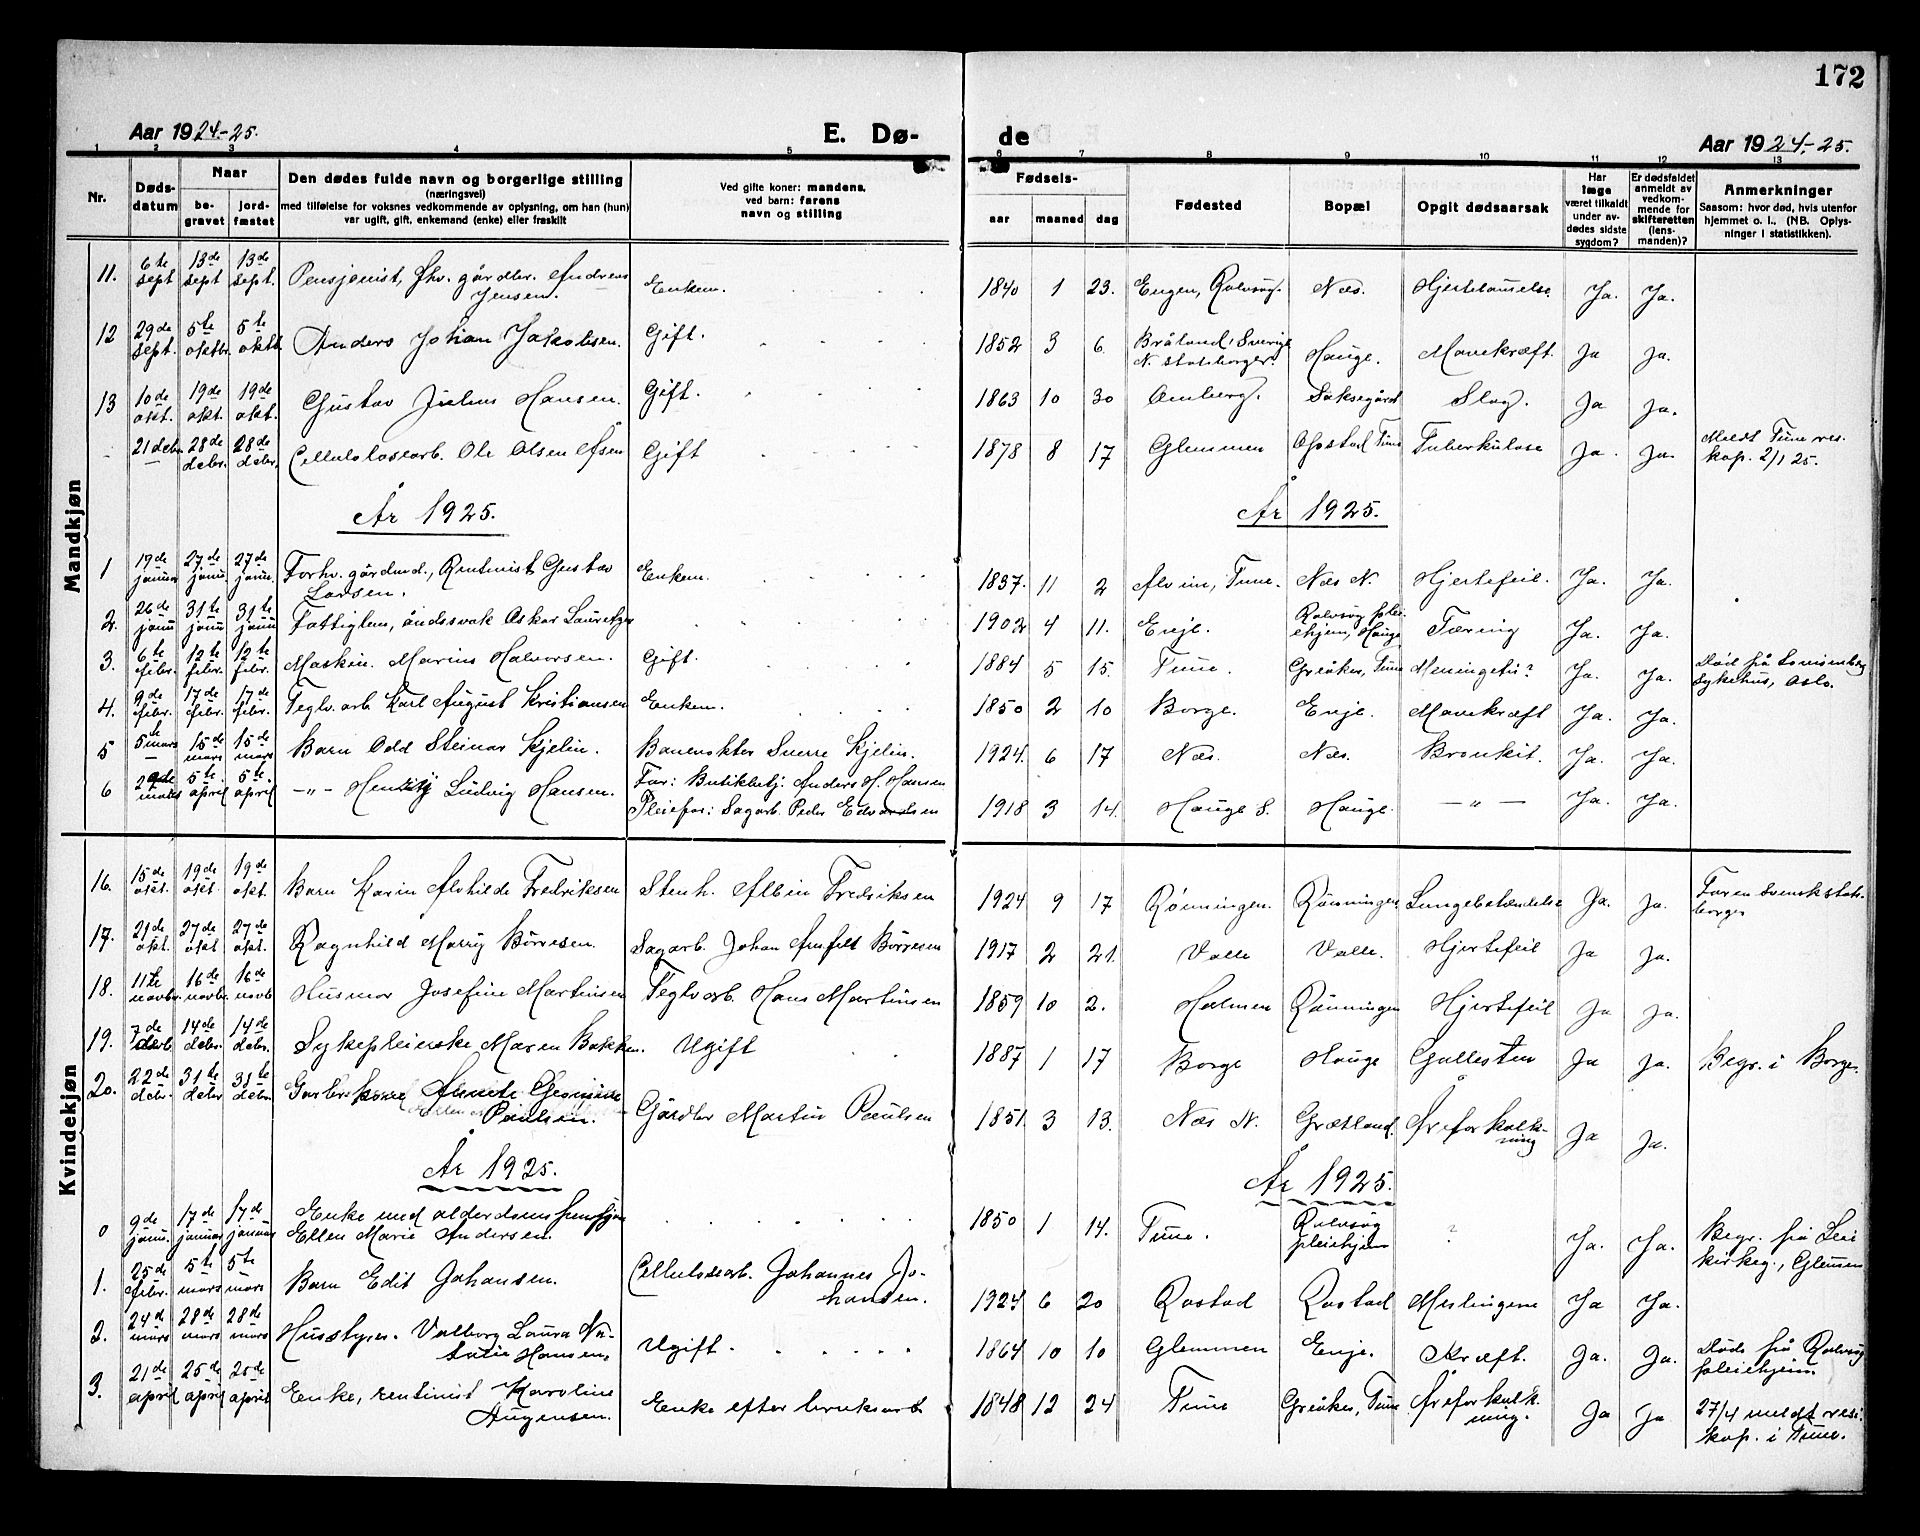 172
Aar 1924-25.
E. Dø-
de
Aar 1924-25.
1 2 3 4 5 6 7 8 9 10 11 12 13
Nr.
Døds-
datum
Naar
be-
gravet
jord-
fæstet
Den dødes fulde navn og borgerlige stilling
(næringsvei)
med tilføielse for voksnes vedkommende av oplysning, om han (hun)
var ugift, gift, enkemand (enke) eller fraskilt
Ved gifte koner: mandens,
ved barn: farens
navn og stilling
Fødsels-
aar maaned dag
Fødested
Bopæl
Opgit dødsaarsak
Har
læge
været tilkaldt
under av-
dødes sidste
sygdom?
Er dødsfaldet
anmeldt av
vedkom-
mende for
skifteretten
(lens-
manden)?
Anmerkninger
Saasom: hvor død, hvis utenfor
hjemmet o. l., (NB. Oplys-
ninger i statistikken).
Mandkjøn
11. 6te sept 13de sept 13de sept. Pensjonist, fhv. gårdbr. Andreas Jensen. Enkem. 1840 1 23. Engen, Rolvsøy. Næs. Hjertelammelse. Ja. Ja.
12 29de sept. 5te oktbr. 5te oktb Anders Johan Jakobsen. Gift. 1852 3 6. Bråland, Sverige N. statsborger. Hauge. Mavekræft. Ja Ja.
13 10de okt. 19de okt. 19de okt. Gustav Julius Hansen. Gift. 1863 10 30 Omberg. Saksegård Slag. Ja Ja.
21 debr 28de debr. 28de debr. Cellulosearb. Ole Olsen Åsen Gift 1878 8 17 Glemmen Opstad Tune Tuberkulose Ja. Ja. Meldt Tune res. kap. 2/1 25.
År 1925. År 1925.
1 19de januar 27de janu. 27de janu. Forhv. gårdmd., Rentenist Gustav Larsen. Enkem. 1837. 11 2 Alvim, Tune. Næs N. Hjertefeil. Ja. Ja.
2. 26de janu 31te janu 31te janu Fattiglem, åndssvak Oskar Lauritzen 1902 4 11. Evje. Rolvsøy pleiehjem, Hauge Tæring Ja. Ja.
3. 6te febr. 12te febr. 12te febr. Maskin. Marius Halvorsen. Gift. 1884 5 15. Tune. Greåker, Tune Meningeti? Ja. Ja. Død på Lovisenberg Sykehus, Oslo.
4. 9de febr. 17de febr. 17de febr. Teglv. arb Karl August Kristiansen Enkem. 1850 2 10 Borge. Evje. Mavekræft Ja. Ja.
5 5te mars 15de mars 15de mars Barn Odd Steinar Kjelin. Banevokter Sverre Kjelin. 1924. 6 17 Næs. Næs. Bronkit. Ja. Ja.
6 29de mars 5te april 5te april -"- Henry Ludvig Hansen. Far: Butikkbetj. Anders H. Hansen Pleiefar: Sagarb. Peder Edvardsen 1918 3 14. Hauge S. Hauge. -"- Ja. Ja.
Kvindekjøn
16. 15de okt. 19de okt. 19de okt. Barn Karin Alvhilde Fredriksen Stenh. Albin Fredriksen 1924 9 17 Rønningen. Rønningen Lungebetændelse Ja. Ja. Faren svensk statsborger
17. 21de okt. 27de okt 27de okt. Ragnhild Marry Børresen. Sagarb. Johan Arnfelt Børresen 1917 2 21. Valle Valle. Hjertefeil Ja Ja.
18. 11te novbr. 16de novbr. 16de novb Husmor Josefine Martinsen Teglv. arb. Hans Martinsen 1859 10 2. Holmen Rønningen Hjertefeil Ja Ja.
19. 7de debr 14de debr. 14de debr. Sykepleierske Maren Bakken. Ugift 1887 1 17 Borge Hauge Gallesten Ja Ja. Begr. i Borge.
20. 22de debr. 31te debr 31te debr. Paulsen. Gårdbr Martin Paulsen 1851. 3 13. Næs N. Grætland. Åreforkalkning Ja Ja.
År 1925. År 1925.
0 9de janu. 17de januar 17de januar Enke med alderdomspensjon Ellen Marie Andersen. 1850 1 14. Tune. Rolvsøy pleiehjem ? Ja. Ja. Begr. på Leie kirkeg., Glemmen
1. 25de febr. 5te mars 5te mars Barn Edit Johansen. Cellulosearb. Johannes Johansen. 1924 6 20 Rostad Rostad Meslingene Ja Ja.
2. 24d mars 28de mars 28de mars Husstyrer. Valborg Laura Natalie Hansen. Ugift. 1864 10 10 Glemmen Evje. Kræft. Ja. Ja. Døde på Rolvsøy pleiehjem.
3. 21de april 25de april 25de april Enke, rentenist Karoline Augensen. Enke efter bruksarb. 1848 12 24 Tune Greåker, Tune Åreforkalkning. Ja Ja 27/4 meldt res. kap. i Tune.